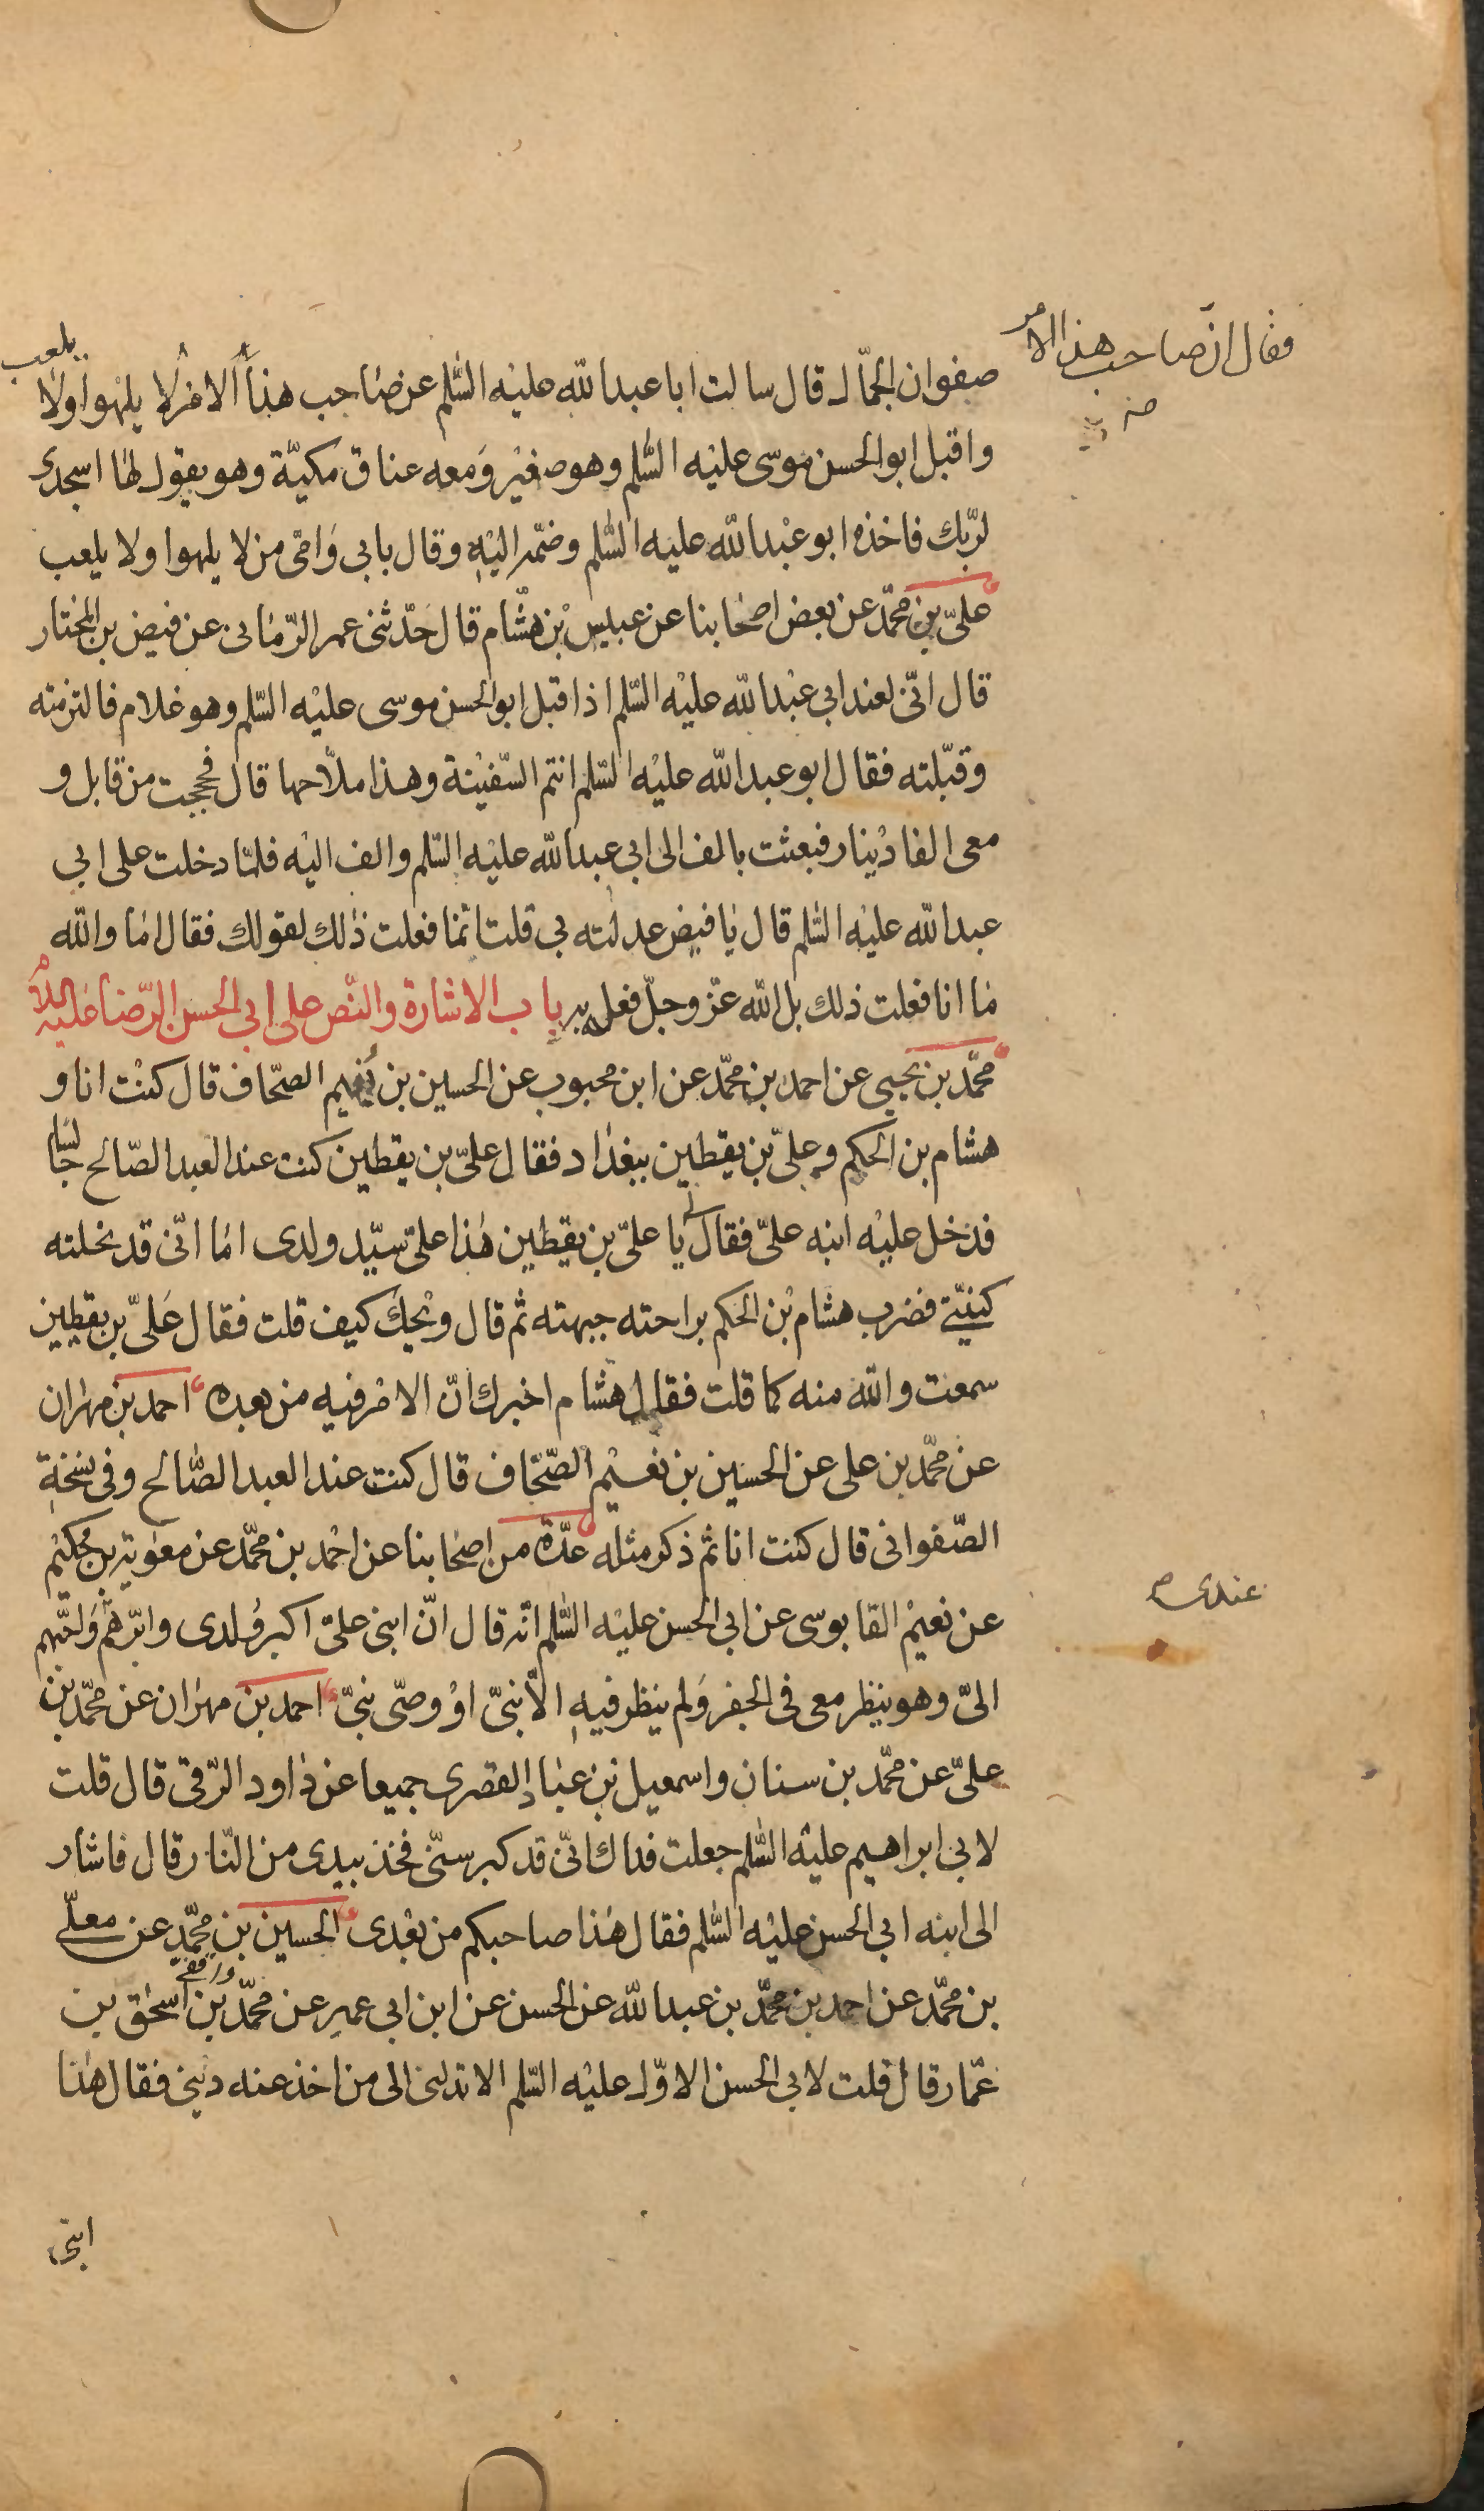 فقال ان صاحب هذا الامر
صفوان الجمّال قال سالت ابا عبدالله عليه السّلم عن صاحب هذا الامر لا يلهوا ولا يلعب
واقبل ابو الحسن موسى عليه السّلم وهو صغير ومعه عناق مكيّة وهو يقول لها اسجدى
لربّك فاخذه ابو عبدالله عليه السّلم وضمّه اليه وقال بابي وامّى من لا يلهوا ولا يلعب
علىّ بن محمّد عن بعض اصحابنا عن عبيس بن هشام قال حدّثنى عمر الرّمانى عن فيض بن المختار
قال انّى لعند ابي عبدالله عليه السّلم اذ اقبل ابو الحسن موسى عليه السّلم وهو غلام فالتزمته
وقبّلته فقال ابو عبدالله عليه السّلم انتم السّفينة وهذا ملاّحها قال فحججت من قابل و
معى الفا دينار فبعثت بالف الى ابي عبدالله عليه السّلم والف اليه فلمّا دخلت على ابي
عبدالله عليه السّلم قال يا فيض عدلته بي قلت انّما فعلت ذلك لقولك فقال اما والله
ما انا فعلت ذلك بل الله عزّ وجلّ فعله به باب الاشارة والنّص على ابي الحسن الرّضا عليه السّلام
محمّد بن يحيى عن احمد بن محمّد عن ابن محبوب عن الحسين بن نعيم الصحّاف قال كنت انا و
هشام بن الحكم وعلىّ بن يقطين ببغداد فقال علىّ بن يقطين كنت عند العبد الصّالح جالسا
فدخل عليه ابنه علىّ فقال لى يا علىّ بن يقطين هذا علىّ سيّد ولدى اما انّى قد نحلته
كنيتى فضرب هشام بن الحكم براحته جبهته ثم قال ويحك كيف قلت فقال علىّ بن يقطين
سمعت والله منه كما قلت فقال هشام اخبرك انّ الامر فيه من بعده احمد بن مهران
عن محمّد بن على عن الحسين بن نعيم الصّحّاف قال كنت عند العبد الصّالح وفى نسخة
الصّفوانى قال كنت انا ثم ذكر مثله عدّة من اصحابنا عن احمد بن محمّد عن معوية بن حكيم
عن نعيم القابوسى عن ابي الحسن عليه السّلم انّه قال انّ ابنى علىّ اكبر ولدى وابرّهم واحبّهم
عندى
الىّ وهو ينظر معى فى الجفر ولم ينظر فيه الاّ نبىّ او وصّى نبىّ احمد بن مهران عن محمّد بن
علىّ عن محمّد بن سنان واسمعيل بن عباد القصرى جميعا عن داود الرّقى قال قلت
لابي ابراهيم عليه السّلم جعلت فداك انّى قد كبر سنّى فخذ بيدى من النّار قال فاشار
الى ابنه ابي الحسن عليه السّلم فقال هذا صاحبكم من بعدى الحسين بن محمّد عن معلّى
بن محمّد عن احمد بن محمّد بن عبدالله عن الحسن عن ابن ابي عمير عن محمّد بن اسحق بن
عمّار قال قلت لابي الحسن الاوّل عليه السّلم الا تدلنى الى من اخذ عنه دينى فقال هذا
ابنى